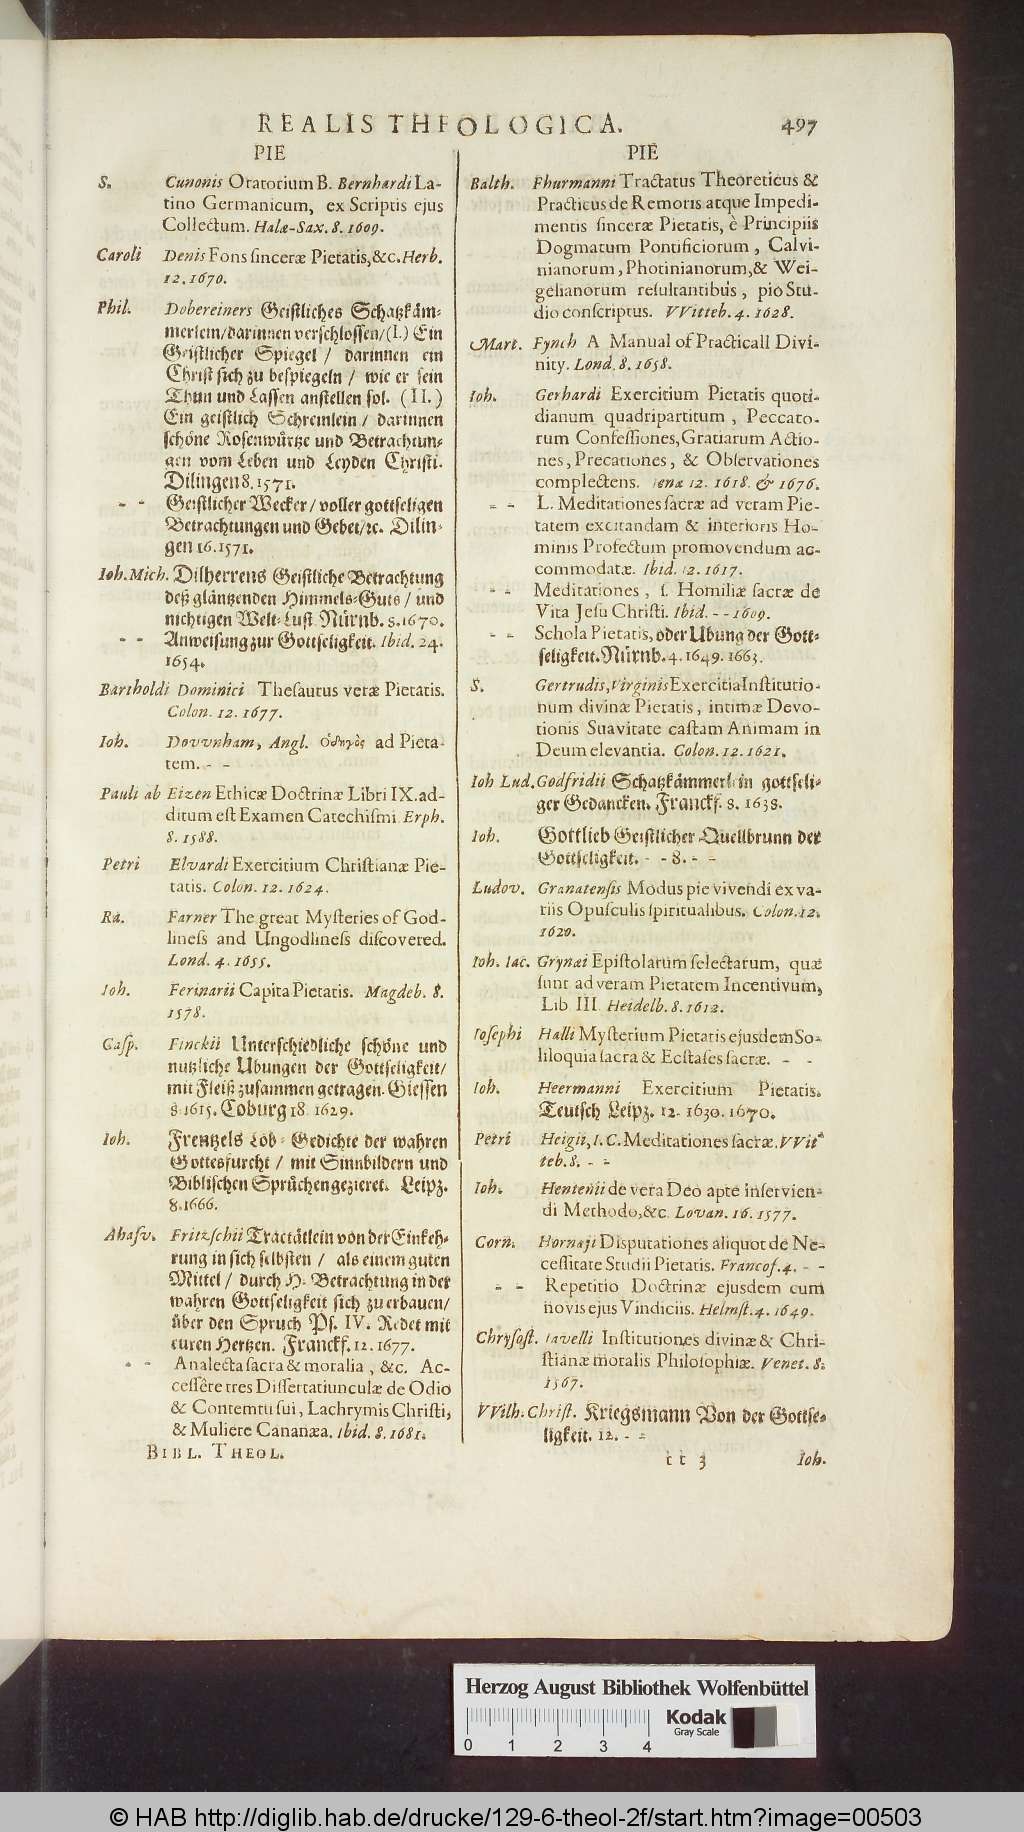 REALIS THEOLOGICA. 497
PIE
S. Cunonis Oratorium B. Bernhardi La-
tino Germanicum, ex Scriptis ejus
Collectum. Halæ-Sax. 8. 1609.
Caroli Denis Fons sinceræ Pietatis, &c. Herb.
12. 1670.
Phil. Dobereiners Geistliches Schatzkäm-
merlein/darinnen verschlossen/(I.) Ein
Geistlicher Spiegel / darinnen ein
Christ sich zu bespiegeln / wie er sein
Thun und Lassen anstellen sol. (II.)
Ein geistlich Schreinlein / darinnen
schöne Rosenwürtze und Betrachtun-
gen vom Leben und Leyden Christi.
Dilingen 8. 1571.
- - Geistlicher Wecker / voller gottseligen
Betrachtungen und Gebet/ꝛc. Dilin-
gen 16. 1571.
Ioh. Mich. Dilherrens Geistliche Betrachtung
deß gläntzenden Himmels-Guts / und
nichtigen Welt-Lust. Nürnb. 8. 1670.
- - Anweisung zur Gottseligkeit. Ibid. 24.
1654.
Bartholdi Dominici Thesaurus veræ Pietatis.
Colon. 12. 1677.
Ioh. Dovvnham, Angl. ὁδηγὸς ad Pieta-
tem. - -
Pauli ab Eizen Ethicæ Doctrinæ Libri IX. ad-
ditum est Examen Catechismi Erph.
8. 1588.
Petri Elvardi Exercitium Christianæ Pie-
tatis. Colon. 12. 1624.
Ra. Farner The great Mysteries of God-
liness and Ungodliness discovered.
Lond. 4. 1655.
Ioh. Ferinarii Capita Pietatis. Magdeb. 8.
1578.
Casp. Finckii Unterschiedliche schöne und
nutzliche Ubungen der Gottseligkeit/
mit Fleiß zusammen getragen. Giessen
8. 1615. Coburg 18. 1629.
Ioh. Frentzels Lob-Gedichte der wahren
Gottesfurcht / mit Sinnbildern und
Biblischen Sprüchen gezieret. Leipz.
8. 1666.
Ahasv. Fritzschii Tractätlein von der Einkeh-
rung in sich selbsten / als einem guten
Mittel / durch H. Betrachtung in der
wahren Gottseligkeit sich zu erbauen/
über den Spruch Ps. IV. Redet mit
euren Hertzen. Franckf. 12. 1677.
- - Analecta sacra & moralia, &c. Ac-
cessêre tres Dissertatiunculæ de Odio
& Contemtu sui, Lachrymis Christi,
& Muliere Cananæa. Ibid. 8. 1681.
BIBL. THEOL.
PIE
Balth. Fhurmanni Tractatus Theoreticus &
Practicus de Remoris atque Impedi-
mentis sinceræ Pietatis, è Principiis
Dogmatum Pontificiorum, Calvi-
nianorum, Photinianorum, & Wei-
gelianorum resultantibus, pio Stu-
dio conscriptus. VVitteb. 4. 1628.
Mart. Fynch A Manual of Practicall Divi-
nity. Lond. 8. 1658.
Ioh. Gerhardi Exercitium Pietatis quoti-
dianum quadripartitum, Peccato-
rum Confessiones, Gratiarum Actio-
nes, Precationes, & Observationes
complectens. Ienæ 12. 1618. & 1676.
- - L. Meditationes sacræ ad veram Pie-
tatem excitandam & interioris Ho-
minis Profectum promovendum ac-
commodatæ. Ibid. 12. 1617.
- - Meditationes, s. Homiliæ sacræ de
Vita Jesu Christi. Ibid. - - 1609.
- - Schola Pietatis, oder Ubung der Gott-
seligkeit. Nürnb. 4. 1649. 1663.
S. Gertrudis, Virginis Exercitia Institutio-
num divinæ Pietatis, intimæ Devo-
tionis Suavitate castam Animam in
Deum elevantia. Colon. 12. 1621.
Ioh Lud. Godfridii Schatzkämmerlein gottseli-
ger Gedancken. Franckf. 8. 1638.
Ioh. Gottlieb Geistlicher Quellbrunn der
Gottseligkeit. - - 8. - -
Ludov. Granatensis Modus pie vivendi ex va-
riis Opusculis spiritualibus. Colon. 12.
1620.
Ioh. Iac. Grynæi Epistolarum selectarum, quæ
sunt ad veram Pietatem Incentivum,
Lib. III. Heidelb. 8. 1612.
Iosephi Halli Mysterium Pietatis ejusdem So-
liloquia sacra & Ecstases sacræ. - -
Ioh. Heermanni Exercitium Pietatis.
Teutsch Leipz. 12. 1630. 1670.
Petri Heigii, I. C. Meditationes sacræ. VVit-
teb. 8. - -
Ioh. Hentenii de vera Deo apte inservien-
di Methodo, &c. Lovan. 16. 1577.
Corn. Hornaji Disputationes aliquot de Ne-
cessitate Studii Pietatis. Francof. 4. - -
- - Repetitio Doctrinæ ejusdem cum
novis ejus Vindiciis. Helmst. 4. 1649.
Chrysost. Iavelli Institutiones divinæ & Chri-
stianæ moralis Philosophiæ. Venet. 8.
1567.
VVilh. Christ. Kriegsmann Von der Gottse-
ligkeit. 12. - -
t t 3 Ioh.
Herzog August Bibliothek Wolfenbüttel
0 1 2 3 4
Kodak
Gray Scale
© HAB http://diglib.hab.de/drucke/129-6-theol-2f/start.htm?image=00503